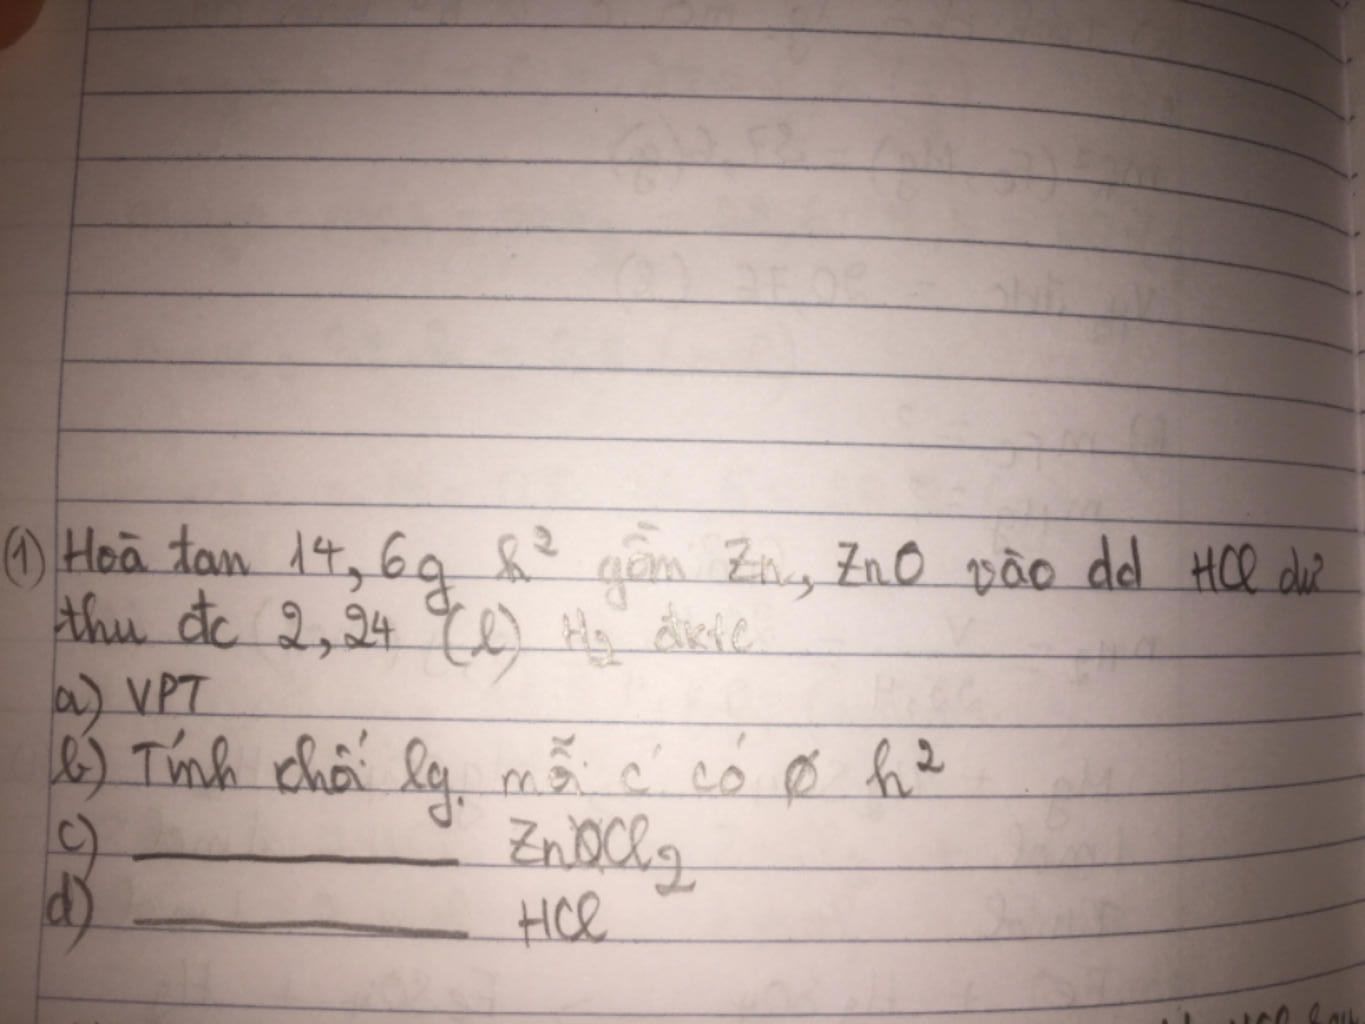 ① Hoà tan 14,6g h² gồm Zn, ZnO vào dd HCl dư
thu đc 2,24 (l) H₂ đktc
a) VPT
b) Tính khối lg. mỗi c' có ∅ h²
c) ——— ZnCl₂
d) ——— HCl